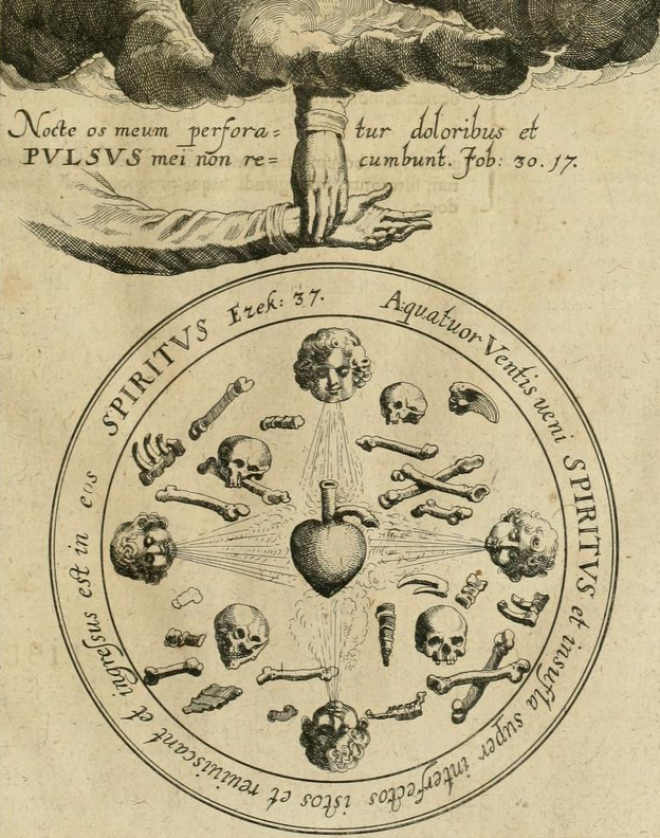 Nocte os meum perfora= tur doloribus et
PVLSVS mei non re= cumbunt. Job: 30. 17.
A quatuor Ventis veni SPIRITVS et insufla super interfectos istos et reuiuiscant et ingressus est in eos SPIRITVS Ezek: 37.